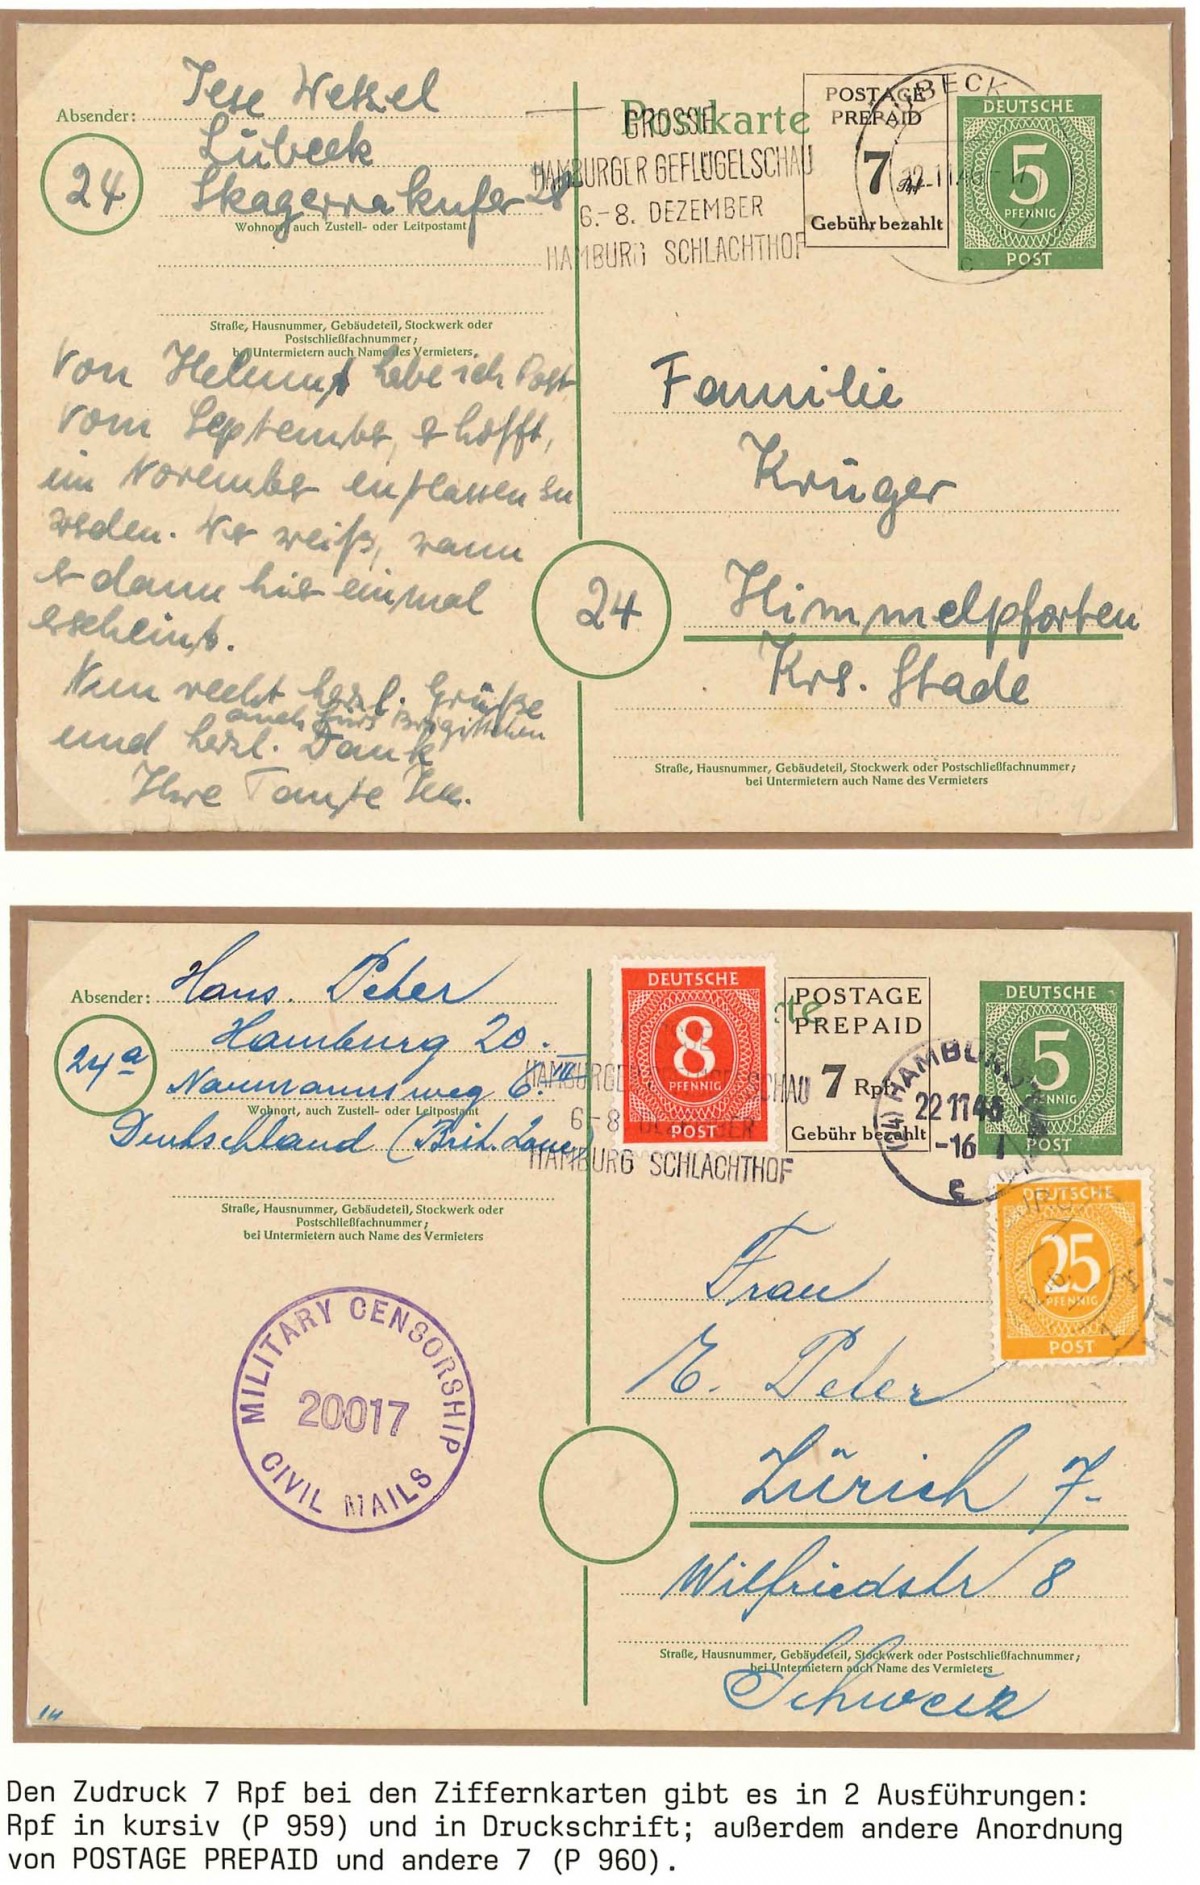 Absender:
Wetzel
Lübeck
24
Skagerrakufer 28
Wohnort, auch Zustell- oder Leitpostamt
Straße, Hausnummer, Gebäudeteil, Stockwerk oder
Postschließfachnummer;
bei Untermietern auch Name des Vermieters
Von Helmut habe ich Post
vom September, er hofft,
im November entlassen zu
werden. Wer weiß, wann
er dann hier einmal
erscheint.
Nun recht herzl. Grüße
auch fürs Brigittchen
und herzl. Dank
Ihre Tante
Postkarte
GROSSE
HAMBURGER GEFLÜGELSCHAU
6.-8. DEZEMBER
HAMBURG SCHLACHTHOF
POSTAGE
PREPAID
7 Rpf
Gebühr bezahlt
LÜBECK
22.11.46
c
DEUTSCHE
5
PFENNIG
POST
Familie
Krüger
24
Himmelpforten
Krs. Stade
Straße, Hausnummer, Gebäudeteil, Stockwerk oder Postschließfachnummer;
bei Untermietern auch Name des Vermieters
Absender:
Hans. Peter
Hamburg 20.
24a
Naumannsweg 6. III
Wohnort, auch Zustell- oder Leitpostamt
Deutschland (Brit. Zone)
Straße, Hausnummer, Gebäudeteil, Stockwerk oder
Postschließfachnummer;
bei Untermietern auch Name des Vermieters
MILITARY CENSORSHIP
20017
CIVIL MAILS
DEUTSCHE
8
PFENNIG
POST
rte
HAMBURGER GEFLÜGELSCHAU
6.-8. DEZEMBER
HAMBURG SCHLACHTHOF
POSTAGE
PREPAID
7 Rpf
Gebühr bezahlt
DEUTSCHE
5
PFENNIG
POST
(24) HAMBURG
22 11 46
-16
c
DEUTSCHE
25
PFENNIG
POST
Frau
E. Peter
Zürich 7-
Wilfriedstr 8
Straße, Hausnummer, Gebäudeteil, Stockwerk oder Postschließfachnummer;
bei Untermietern auch Name des Vermieters
Schweiz
Den Zudruck 7 Rpf bei den Ziffernkarten gibt es in 2 Ausführungen:
Rpf in kursiv (P 959) und in Druckschrift; außerdem andere Anordnung
von POSTAGE PREPAID und andere 7 (P 960).